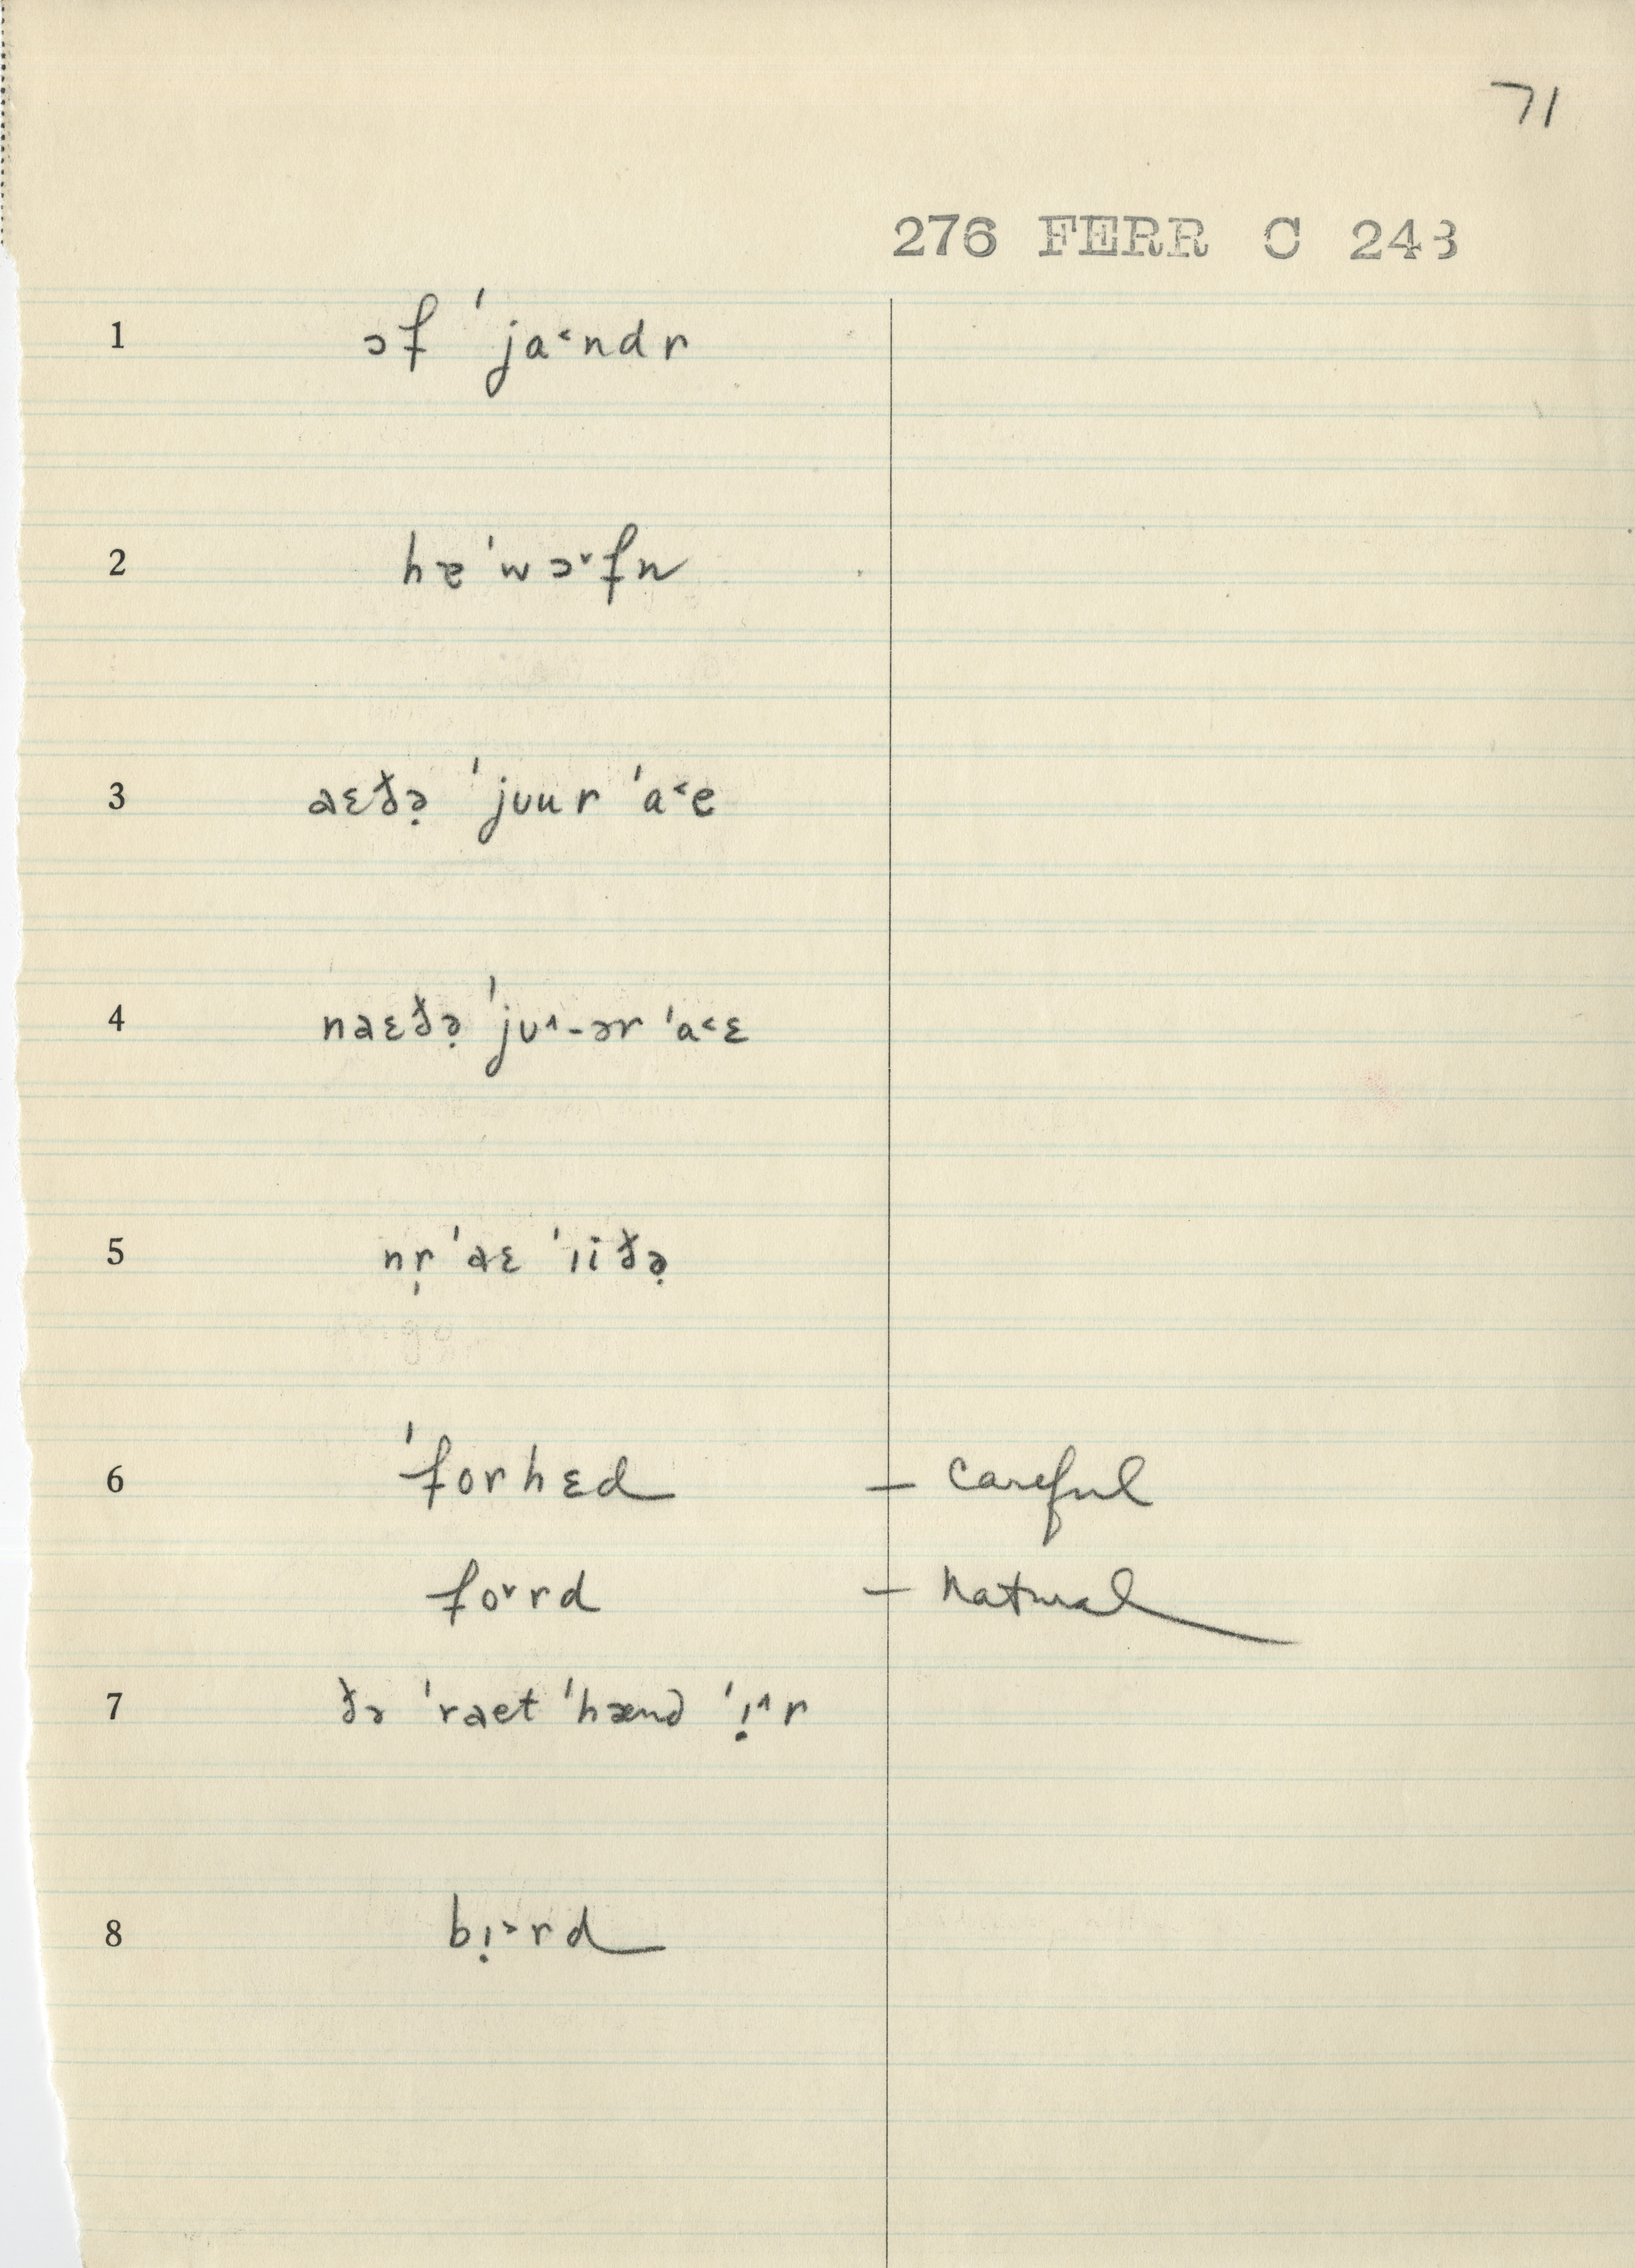 71
276 FERR C 243
1 ɔf ˈja˂ndr
2 hɐ ˈwɔ˅fn
3 aɛðə̣ ˈjʊur ˈa˂e
4 naɛðə̣ ˈjʊ˄-ər ˈa˂ɛ
5 nr̩ ˈaɛ ˈıiðə̣
6 ˈforhɛd – careful
fo˅rd – natural
7 ðə ˈraet ˈhænd ˈı̣˄r
8 bı̣˃rd